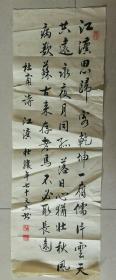 江漢思歸客乾坤一腐儒片雲天
共遠永夜月同孤落日心猶壯秋風
病欲蘇古來存老馬不必取長途
杜甫詩 江漢 年七十